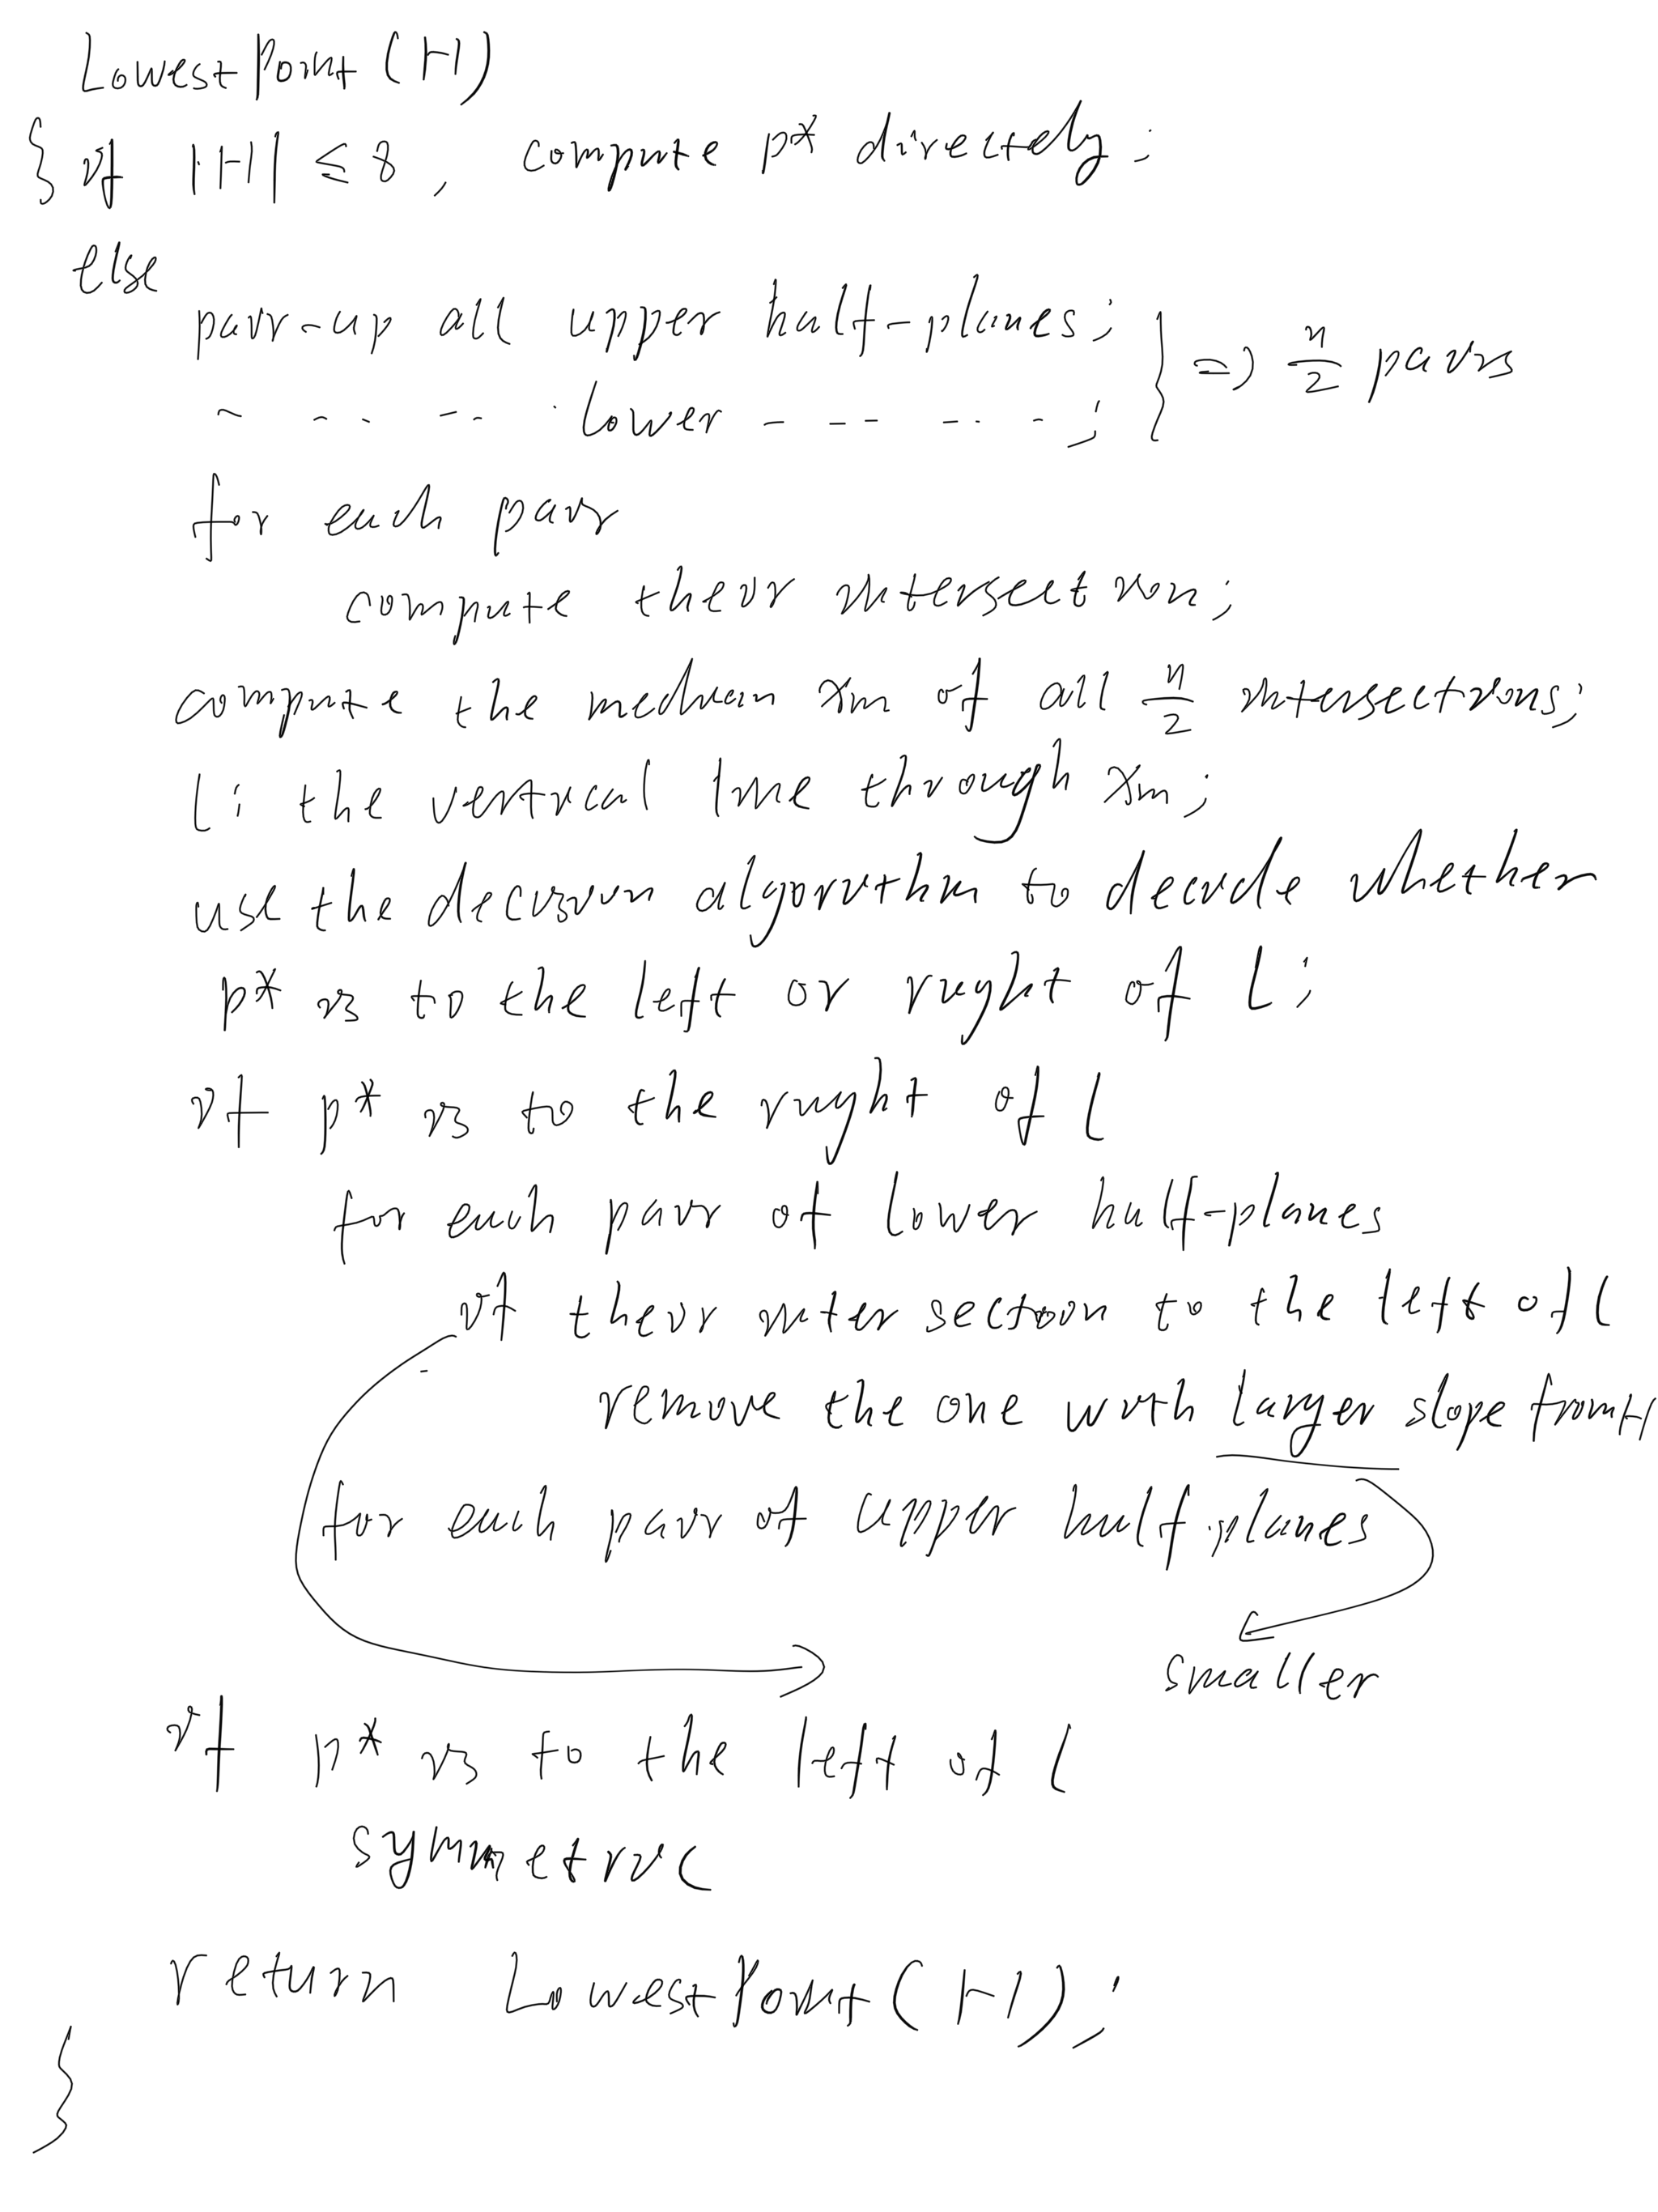 LowestPoint(H)
{ if |H| ≤ 8, compute p* directely;
else
pair-up all upper half-planes;
~ - - - - - lower - - - - - - - ; } => n/2 pairs
for each pair
compute their intersection;
compute the median xm of all n/2 intersections;
l: the vertical line through xm;
use the decision algorithm to decide whether
p* is to the left or right of l;
if p* is to the right of l
for each pair of lower half-planes
if their intersection to the left of l
remove the one with larger slope from H
for each pair of upper half-planes
smaller
if p* is to the left of l
symmetric
return LowestPoint(H);
}